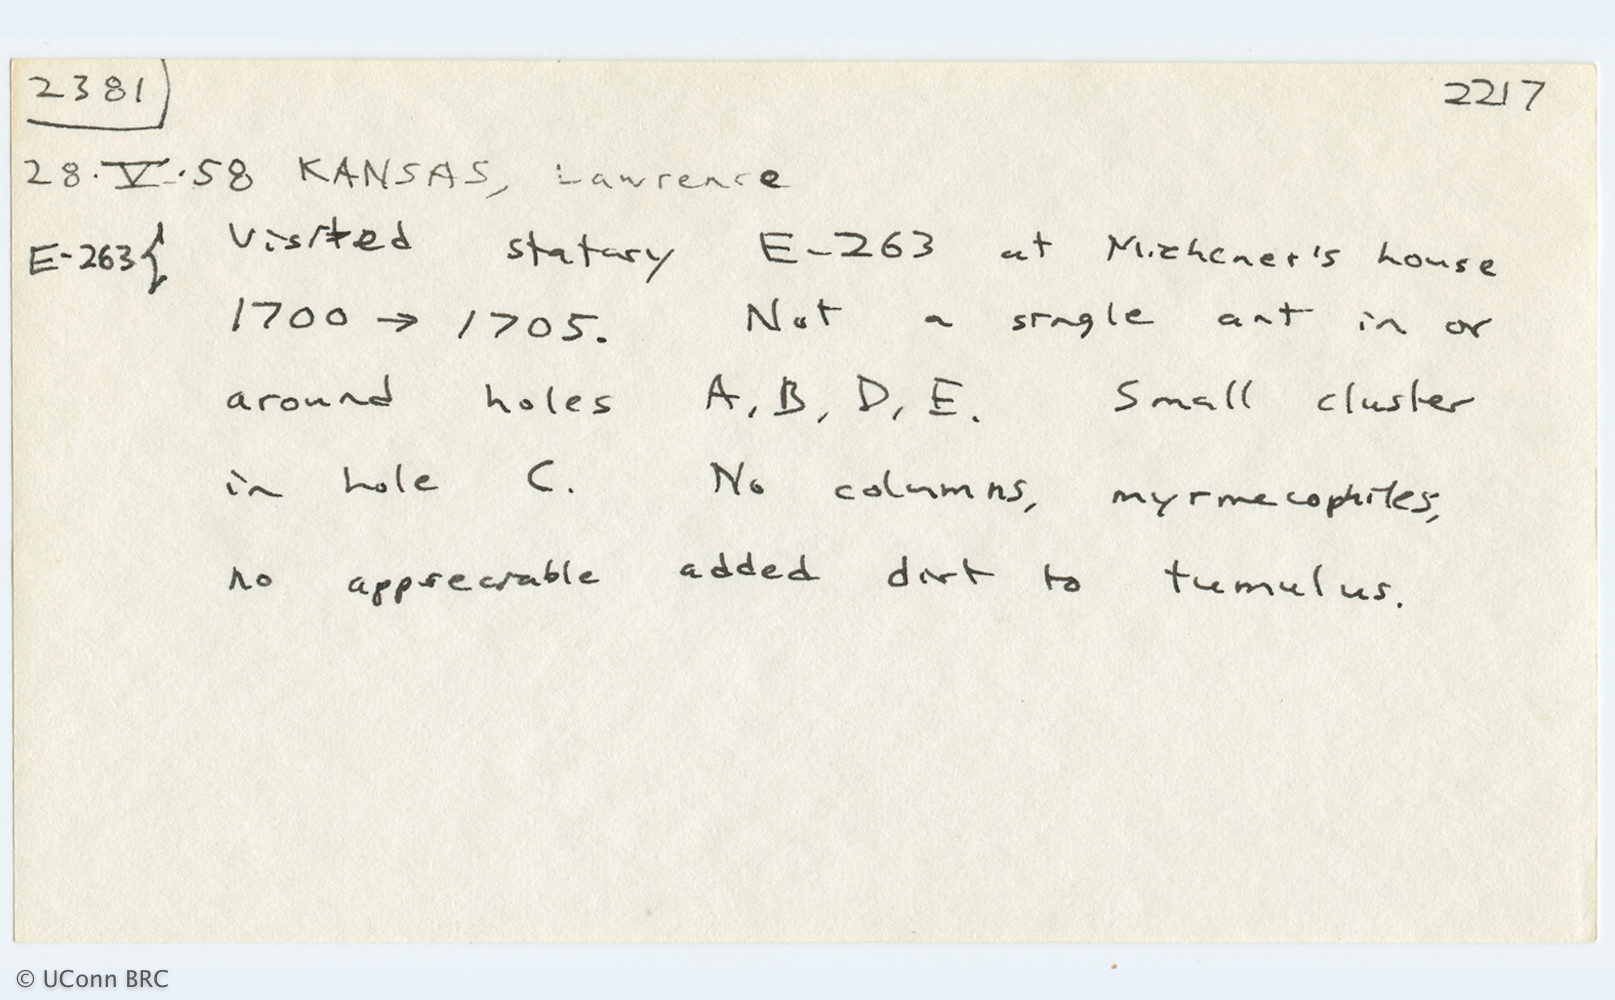 2381 2217
28·V·58 KANSAS, Lawrence
E-263{ Visited statary E-263 at Michener's house
1700 → 1705. Not a single ant in or
around holes A, B, D, E. Small cluster
in hole C. No columns, myrmecophiles,
no appreciable added dirt to tumulus.
© UConn BRC